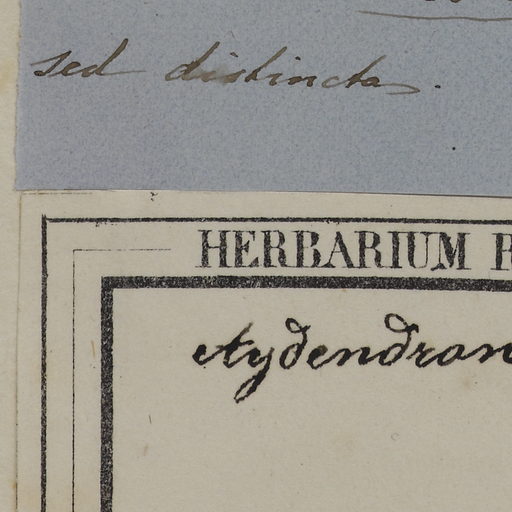 sed distincta.
HERBARIUM R
Aydendron